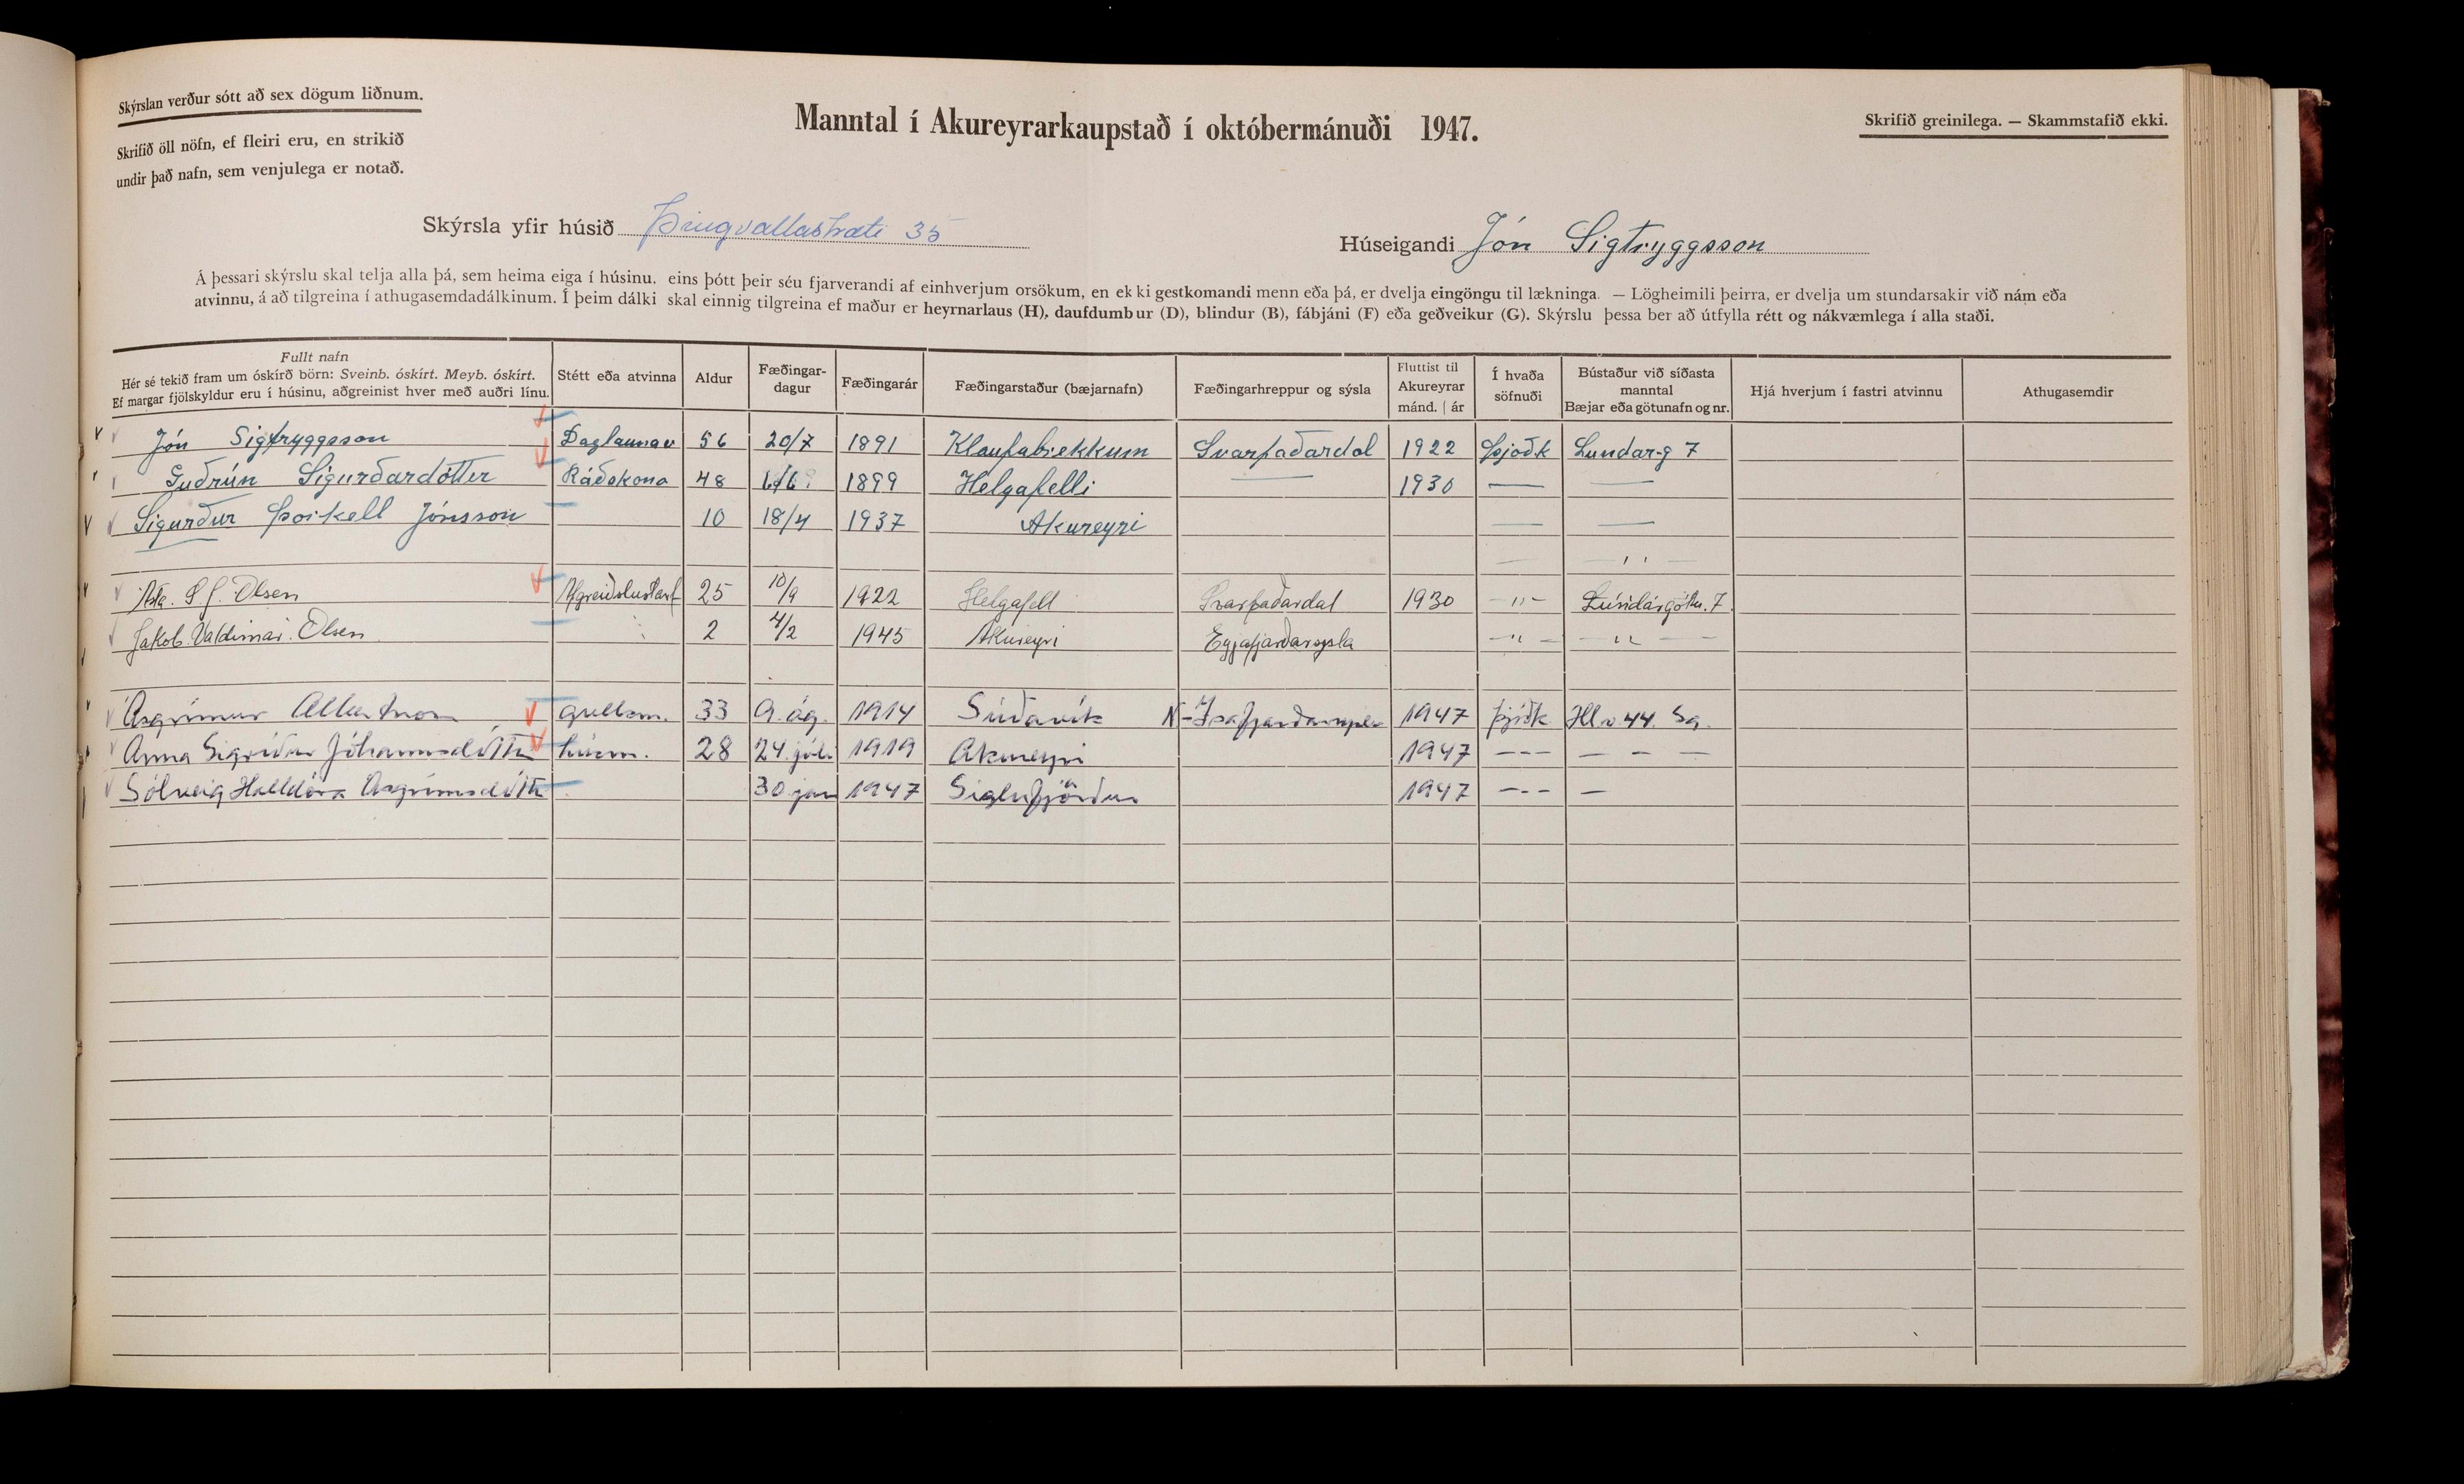 Skýrslan verður sótt að sex dögum liðnum.
Skrifið öll nöfn, ef fleiri eru, en strikið
undir það nafn, sem venjulega er notað.
Manntal í Akureyrarkaupstað í októbermánuði 1947.
Skrifið greinilega. — Skammstafið ekki.
Skýrsla yfir húsið Þingvallastræti 35
Húseigandi Jón Sigtryggsson
Á þessari skýrslu skal telja alla þá, sem heima eiga í húsinu, eins þótt þeir séu fjarverandi af einhverjum orsökum, en ekki gestkomandi menn eða þá, er dvelja eingöngu til lækninga. — Lögheimili þeirra, er dvelja um stundarsakir við nám eða
atvinnu, á að tilgreina í athugasemdadálkinum. Í þeim dálki skal einnig tilgreina ef maður er heyrnarlaus (H), daufdumbur (D), blindur (B), fábjáni (F) eða geðveikur (G). Skýrslu þessa ber að útfylla rétt og nákvæmlega í alla staði.
Fullt nafn
Hér sé tekið fram um óskírð börn: Sveinb. óskírt. Meyb. óskírt.
Ef margar fjölskyldur eru í húsinu, aðgreinist hver með auðri línu.
Stétt eða atvinna
Aldur
Fæðingar-
dagur
Fæðingarár
Fæðingarstaður (bæjarnafn)
Fæðingarhreppur og sýsla
Fluttist til
Akureyrar
mánd. | ár
Í hvaða
söfnuði
Bústaður við síðasta
manntal
Bæjar eða götunafn og nr.
Hjá hverjum í fastri atvinnu
Athugasemdir
Jón Sigtryggsson Daglaunav 56 20/7 1891 Klaufabrekkum Svarfaðardal 1922 Þjóðk Lundar-g 7
Guðrún Sigurðardóttir Ráðskona 48 1899 Helgafelli — 1930 — —
Sigurður Þorkell Jónsson 10 18/4 1937 Akureyri — —
— — " —
Ásta. S. J. Olsen Afgreiðslustarf 25 10/9 1922 Helgafell Svarfaðardal 1930 — " — Lundargötu. 7
Jakob. Valdimar. Olsen 2 4/2 1945 Akureyri Eyjafjarðarsýsla — " — — " —
Ásgrímur Albertsson gullsm. 33 9. ág. 1914 Súðavík N-Ísafjarðarsýsla 1947 þjóðk Hl.v. 44. Sg.
Anna Sigríður Jóhannsdóttir húsm. 28 24. júlí 1919 Akureyri 1947 --- — — —
Sólveig Halldóra Ásgrímsdóttir 30. jan 1947 Siglufjörður 1947 --- —